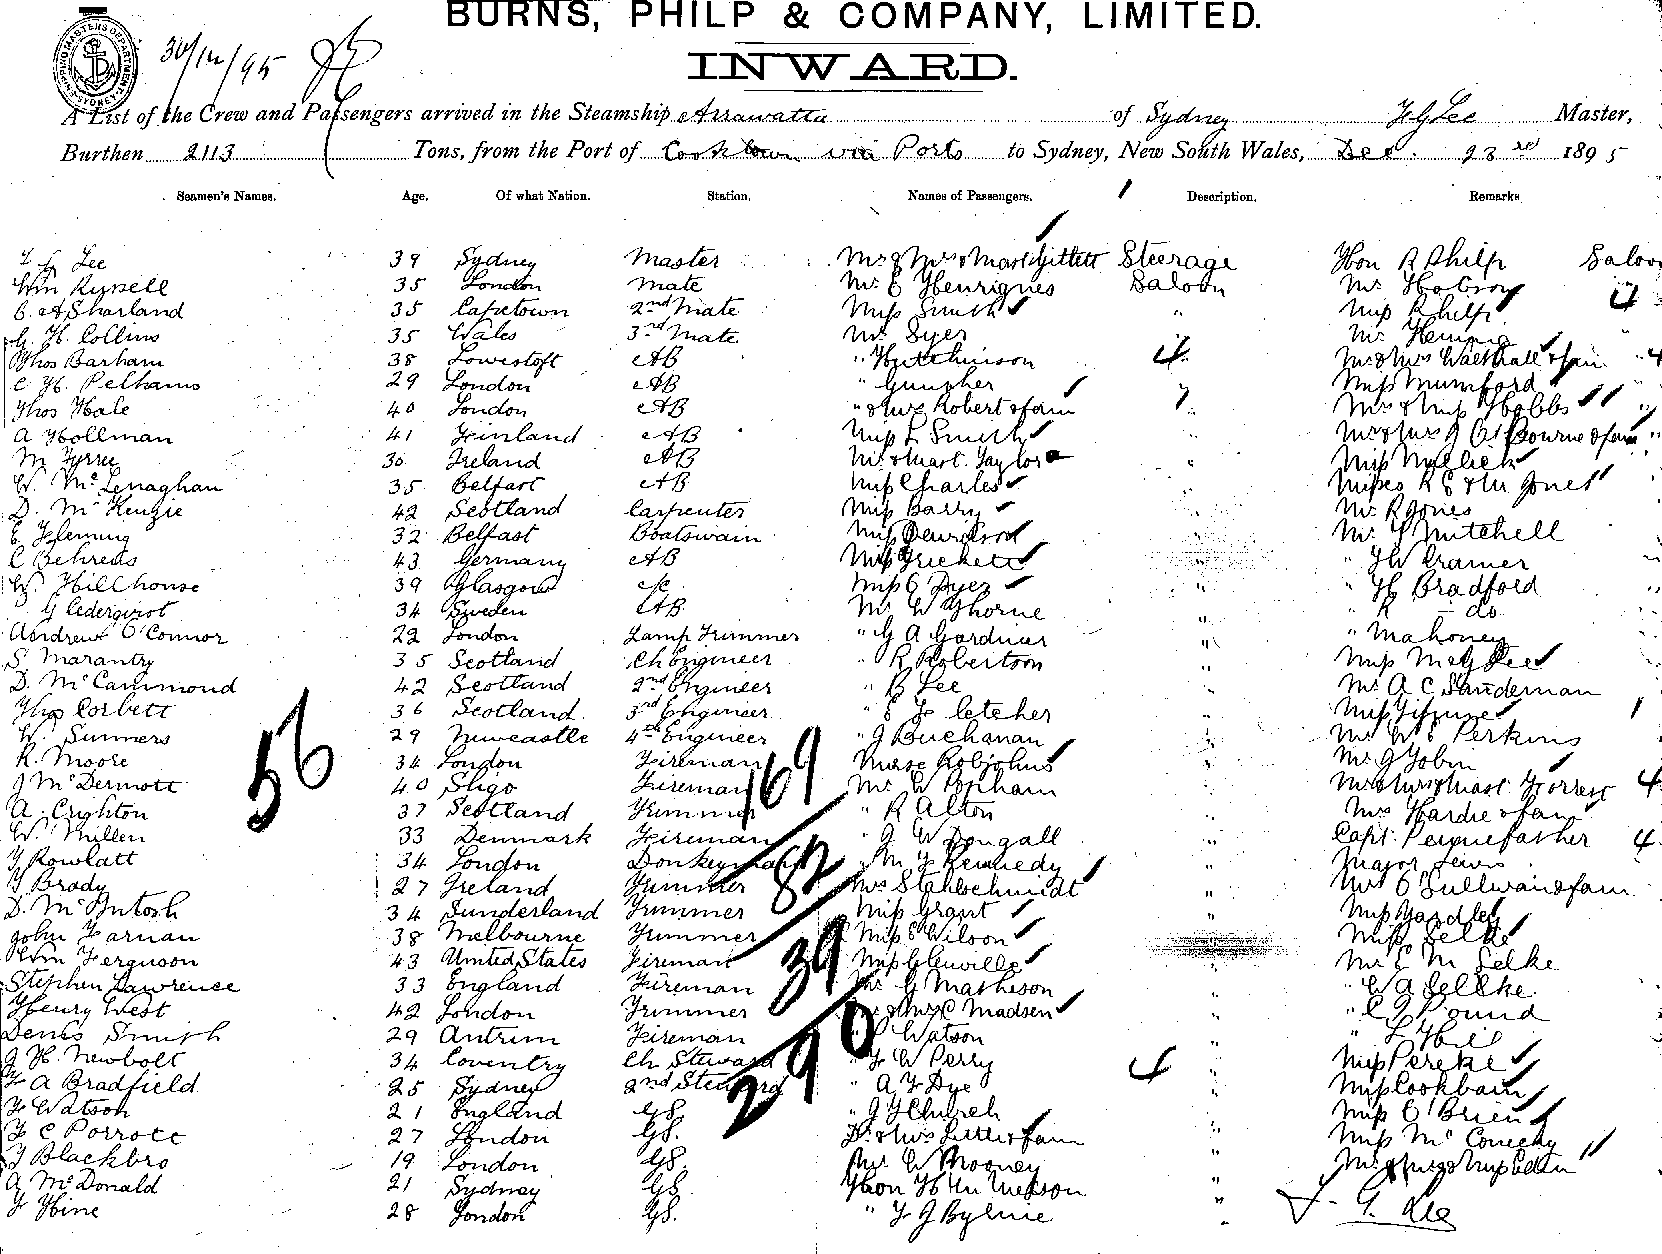 BURNS, PHILP & COMPANY, LIMITED.
INWARD.
30/12/95
A List of the Crew and Passengers arrived in the Steamship Arrawatta of Sydney T G Lee Master,
Burthen 2113 Tons, from the Port of Cooktown via Ports to Sydney, New South Wales, Dec. 23rd 1895
Seamen's Names. Age. Of what Nation. Station. Names of Passengers. Description. Remarks
Lee 39 Sydney Master Mr & Mrs & Mast Gillett Steerage Hon R Philp Saloon
Wm Russell 35 London Mate Mr E Henriques Saloon Mr
C. A Sharland 35 Capetown 2nd Mate Miss Smith " Miss Philp 4
G. H. Collins 35 Wales 3rd Mate Mr Syer Mr Fleming "
Thos Barham 38 Lowestoft AB " Hutchinson 4 Mr & Mrs & fam " 4
C H. Pelhams 29 London AB " Gunther Miss Mumford
Thos Hale 40 London AB " & Mrs Robert & fam " Mr & Miss Hobbs "
A Hollman 41 Finland AB Miss L Smith Mr & Mrs & fam "
M Tyrre 30 Ireland AB Mr & Mast. Taylor " Miss
W. McLenaghan 35 Belfast AB Miss Charles " Misses R E & M Jones
D. McKenzie 42 Scotland Carpenter Miss Barry " Mr R Jones
E Fleming 32 Belfast Boatswain Miss Davidson Mr Mitchell
C Behrens 43 Germany AB Miss Trickett " " Cramer
W. Hillhouse 39 Glasgow Miss E Dyer " " H Bradford
G Cederqvist 34 Sweden AB Mr W Thorne " R do
Andrew O'Connor 22 London Lamp Trimmer " G A Gardner " " Mahoney
S. Marantry 35 Scotland Ch Engineer " R Robertson " Miss Lee
D. McCammond 42 Scotland 2nd Engineer " R Lee " Mr A C Sandeman
Thos Corbett 36 Scotland 3rd Engineer " E Fletcher " Miss
W. Summers 29 Newcastle 4th Engineer " J Buchanan " Mr W E Perkins
R. Moore 34 London Fireman Nurse Robjohns " Mr J Tobin
J McDermott 40 Sligo Fireman Mr W Popham " Mr & Mrs & Mast Forrest 4
A. Crighton 37 Scotland Trimmer " R Alton " Mrs Hardie & fam
W. Millen 33 Denmark Fireman " J W Dougall " Capt. Pennefather 4
T Rowlatt 34 London Donkeyman " M J Kennedy " Major Lewis
T Brady 27 Ireland Trimmer Mrs Stahlschmidt " Mrs O'Sullivan & fam
D. McIntosh 34 Sunderland Trimmer Miss Grant " Miss Yardley
John Farnan 38 Melbourne Trimmer Miss E Wilson Miss Selke
Wm Ferguson 43 United States Fireman Miss Glenville " Mr E M Selke
Stephen Lawrence 33 England Fireman Mr G Matheson " " W A Sellke
Henry West 42 London Trimmer & Mrs C Madsen " " C J Pound
Denis Smith 29 Antrim Fireman " P Watson " " L Hill
J H. Newbolt 34 Coventry Ch Steward " F W Perry 4 Miss Pereke
F A Bradfield 25 Sydney 2nd Steward " A F Dye " Miss Cookbain
F Watson 21 England GS. " J F Church " Miss O'Brien
F C Porrott 27 London GS. Dr & Mrs Little & fam " Miss McConechy
T Blackbro 19 London GS. Mr W Mooney "
A McDonald 21 Sydney GS. Hon H M Nelson "
F Hine 28 London GS. " T J Byrne " T. G. Lee
56
169
82
39
290